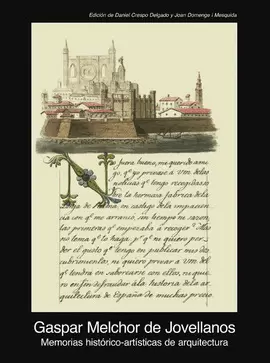 Edición de Daniel Crespo Delgado y Joan Domenge i Mesquida
No fuera bueno, mi querido ami-
go, qe yo privase á Vm de las
noticias qe tengo recogidas so-
bre la hermosa fabrica de la
Lonja de Palma, en castigo de la impacien-
cia con qe me arrancó, sin tiempo ni sazon,
las primeras qe empezaba á recoger? Mas
no tema qe lo haga, y qe no quiero per-
der el gusto de publicar mis des-
cubrimientos, ni quiero privar á Vm del
qe tendrá en saborearse con ellos, ni quie-
ro en fin defraudar á la historia de la ar-
quitectura de España de muchas precio-
Gaspar Melchor de Jovellanos
Memorias histórico-artísticas de arquitectura